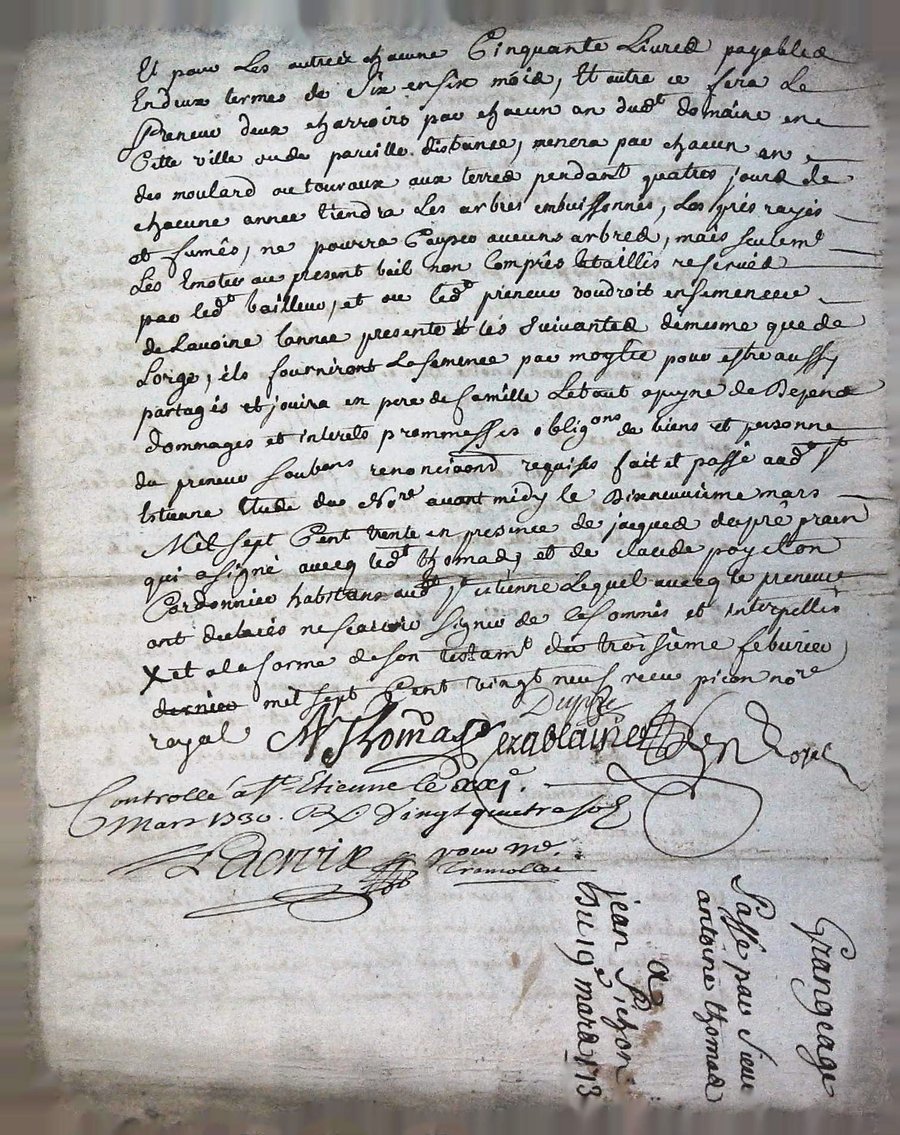 Et pour Les autres chacune Cinquante Livres payables
En deux termes de Six en six mois, Et outre ce fera Le
Preneur deux charroirs par chacun an dud.t domaine en
Cette ville ou de pareille distance, menera par chacun an
des moulard ou touraux aux terres pendant quatres jours de
chacune annee tiendra Les arbres embuissonnés, Les prés rayés
et fumés, ne pourra Couper aucuns arbres, mais seulem.t
Les Emoter au present bail non Comprès le taillis reservés
par led.t bailleur, et ou led.t preneur voudroit ensemencer
de Lavoine Lannee presente et les Suivantes demesme que de
Lorge, ils fourniront La semence par moytié pour estre aussy
partagés et jouira en pere de famille Le tout a peyne de Depens
Dommages et interets promesses oblig.ons de biens et personne
du preneur soubons renonciaons requises fait et passé aud.t S.t
Estienne Etude du No.re avant midy le Dixneuvième mars
Mil sept Cent trente en presence de jacques dupré
qui a signé avecq led.t thomas, et de claude
Cordonnier habitans aud.t S.t etienne Lequel avecq le preneur
ont declarés ne scavoir Signer de ce Sommés et Interpellés
X et a la forme de son testam.t du troisième febvrier
dernier mil sept Cent vingt neuf receu picon no.re
royal
Dupré
A Thomas Royal
Controllé a St Etienne le xxj.e
Mars 1730. Rx Vingt quatre sols
Lacroix pour Mr
Grangeage
Passé par Sieur
antoine thomas
a
jean Pichon
Du 19.e mars 173